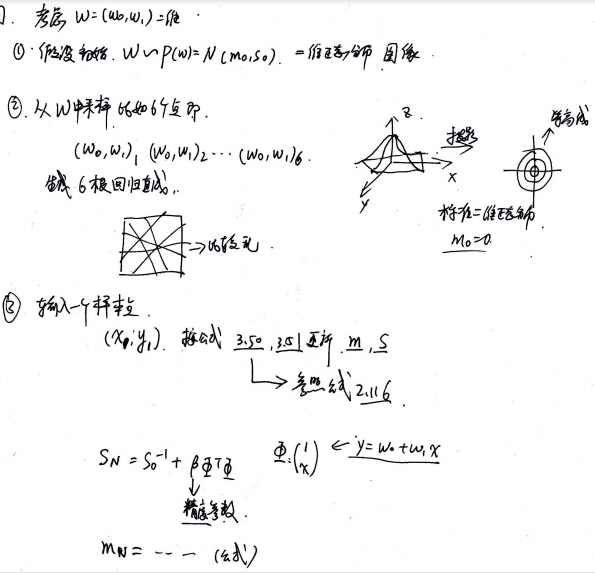 考虑 W=(w₀,w₁)二维.
①. 假设初始. W∽P(w)=N(m₀,S₀). 二维正态分布 图像.
②. 从W中采样 比如6个点即.
(w₀,w₁)₁ (w₀,w₁)₂ … (w₀,w₁)₆.
生成 6根回归直线.
→比较乱
z
x
y
投影
等高线
标准二维正态分布
m₀=0
③ 输入一个样本点
(x₁,y₁). 按公式 3.50, 3.51更新 m, S
→ 参照公式 2.116
S_N = S₀⁻¹ + βΦᵀΦ Φ:(1 x) ← y=w₀+w₁x
精度参数.
m_N = -- -- (公式)